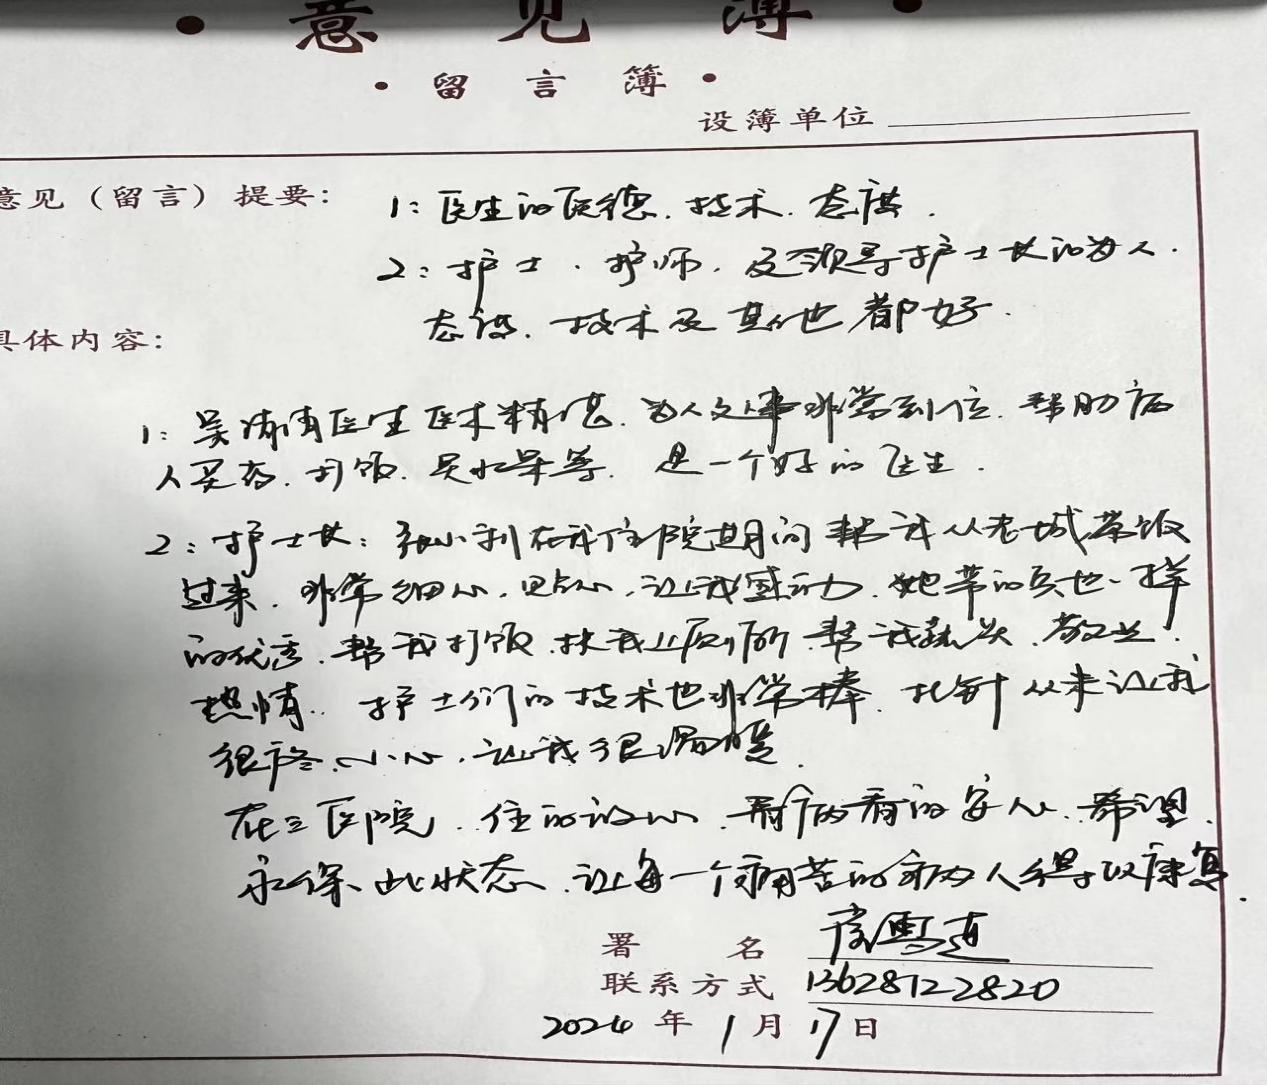 ·意见簿·
·留言簿·
设簿单位
意见（留言）提要：
1：医生的医德．技术．态度．
2：护士．护师．及领导护士长的为人．
态度．技术及其他都好．
具体内容：
1：吴倩倩医生医术精湛．为人文事非常到位．帮助病
人买药．打饭．买水果等．是一个好的医生．
2：护士长：张小利在我住院期间帮我从老城带饭
过来．非常细心．贴心．让我感动．她带的兵也一样
的优秀．帮我打饭．扶我上厕所．帮我．敬业．
热情．护士们的技术也非常棒．扎针从来让我
很．小心．让我很温暖．
在三医院．住的放心．看病看的安心．希望．
永保此状态．让每一个痛苦的病人得以康复．
署名
联系方式 13628722820
2024年1月17日